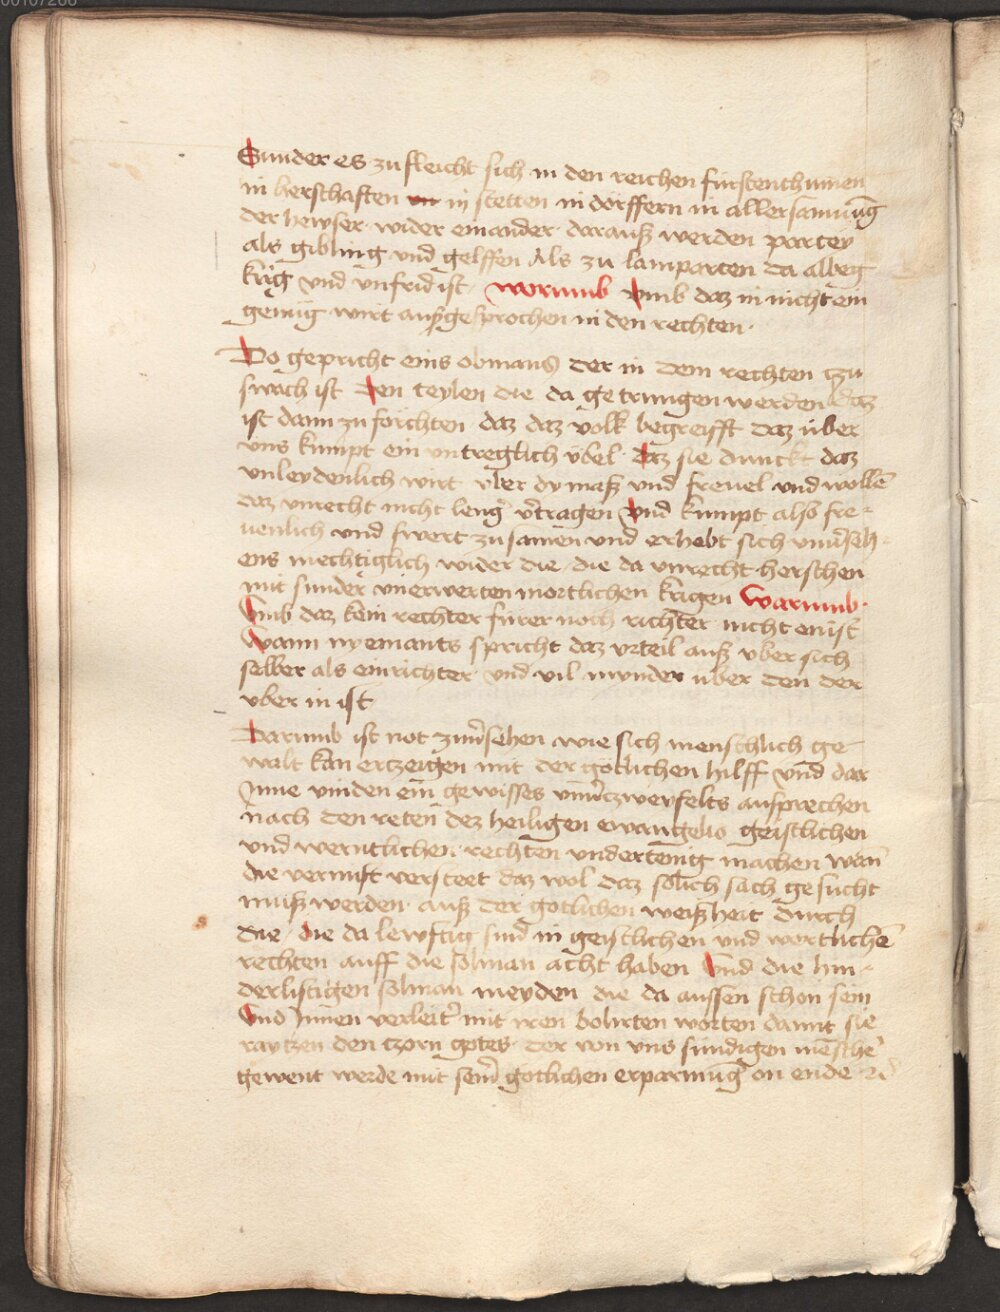 00107266
Sunder es zufleicht sich in den reichen fürstenthumen
in herschaften vn in stetten in dörffern in aller samnūg
der hewser wider einander darauß werden partey
als gibling und gelffen Als zu lamparten da albeg
krig vnd vnfrid ist worumb Vmb daz in nicht ein
genüg wirt außgesprochen in den rechten
Do gepricht eins obmans der in dem rechten czu
swach ist Den teylen die da getrungen werden daz
ist dann zu förchten daz daz volk begreifft daz über
vns kumpt ein vntreglich vbel Daz sie dunckt daz
vnleydenlich wirt vber dy maß vnd freuel vnd wollē
daz vnrecht nicht leng' v'tragen Vnd kumpt also fre
uenlich vnd swert zu samen vnd erhebt sich vnu'seh
ens mechtiglich wider die die da vnrecht herschen
mit sunder vnerwerten mortlichen krigen Warumb
Vmb daz kein rechter fürer noch richter nicht enist
Wann nyemants spricht daz vrteil auß vber sich
selber als ein richter vnd vil mynder über den der
vber in ist
Darumb ist not zuu'sehen wie sich menschlich ge
walt kan erczeigen mit der götlichen hilff vnd dar
Inne vinden ein gewisses vnu'czweyfelts aussprechen
nach den reten dez heiligen ewangelio geistlichen
vnd werntlichen rechten vndertenig machen wan̄
die vernüft versteet daz wol daz sölich sach gesucht
muß werden auß der gotlichen weißheit durch
die die da lewftig sind in geistlichen und werltlichē
rechten auff die solman acht haben Vnd die hin
derlistigen solman meyden die da aussen schon sein
Vnd Innen verleit' mit iren bolirten worten damit sie
raytzen den czorn gotes der von vns sündigen mēschē
gewent werde mit sein' gotlichen erparmūg on ende